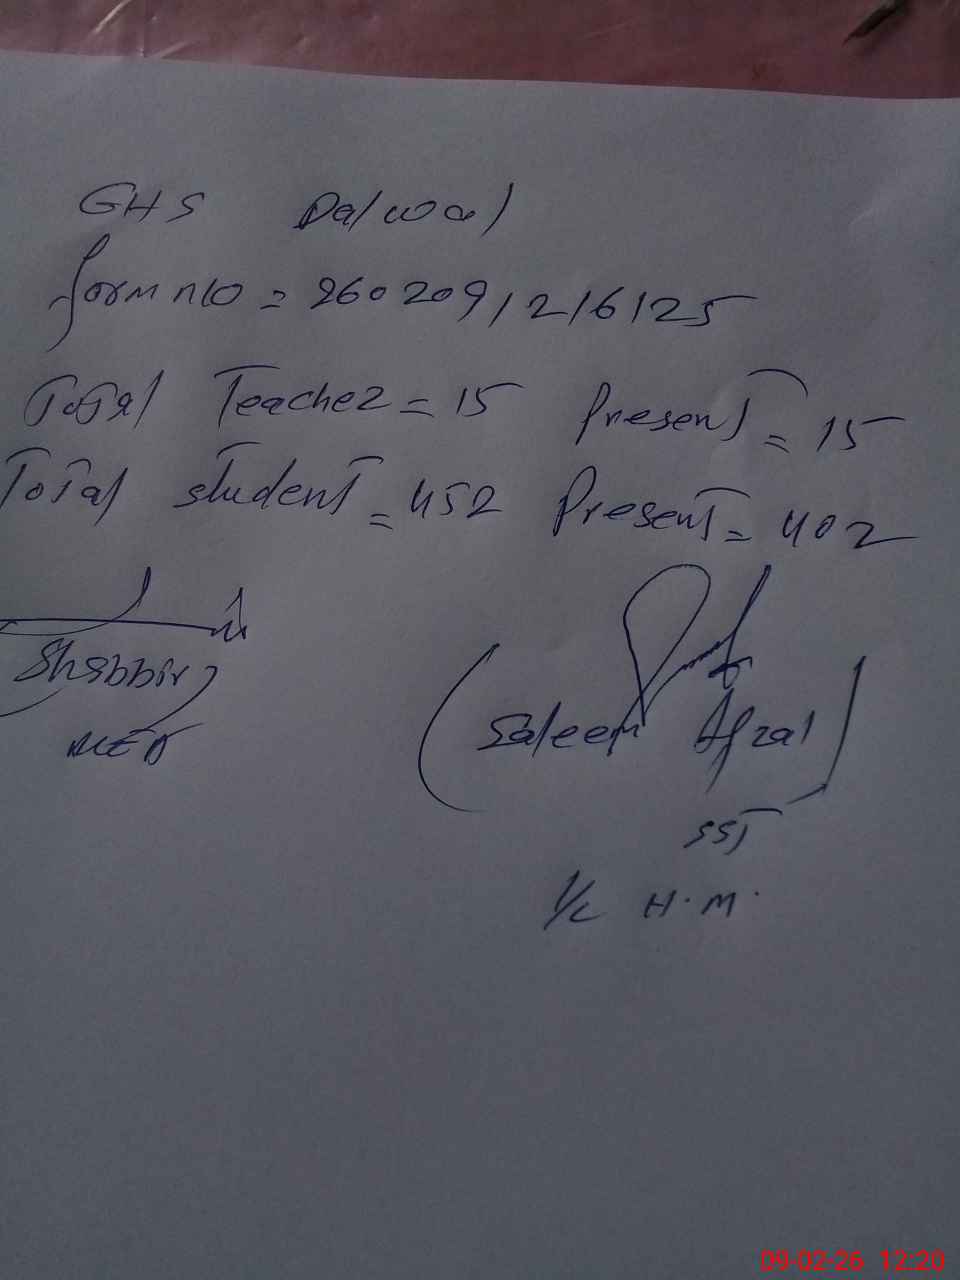 GHS Dalwal
form no = 260209, 216125
Total Teacher = 15 Present = 15
Total student = 452 Present = 402
Shabbir)
(Saleem Afzal)
SST
I/c H.M.
09-02-26 12:20